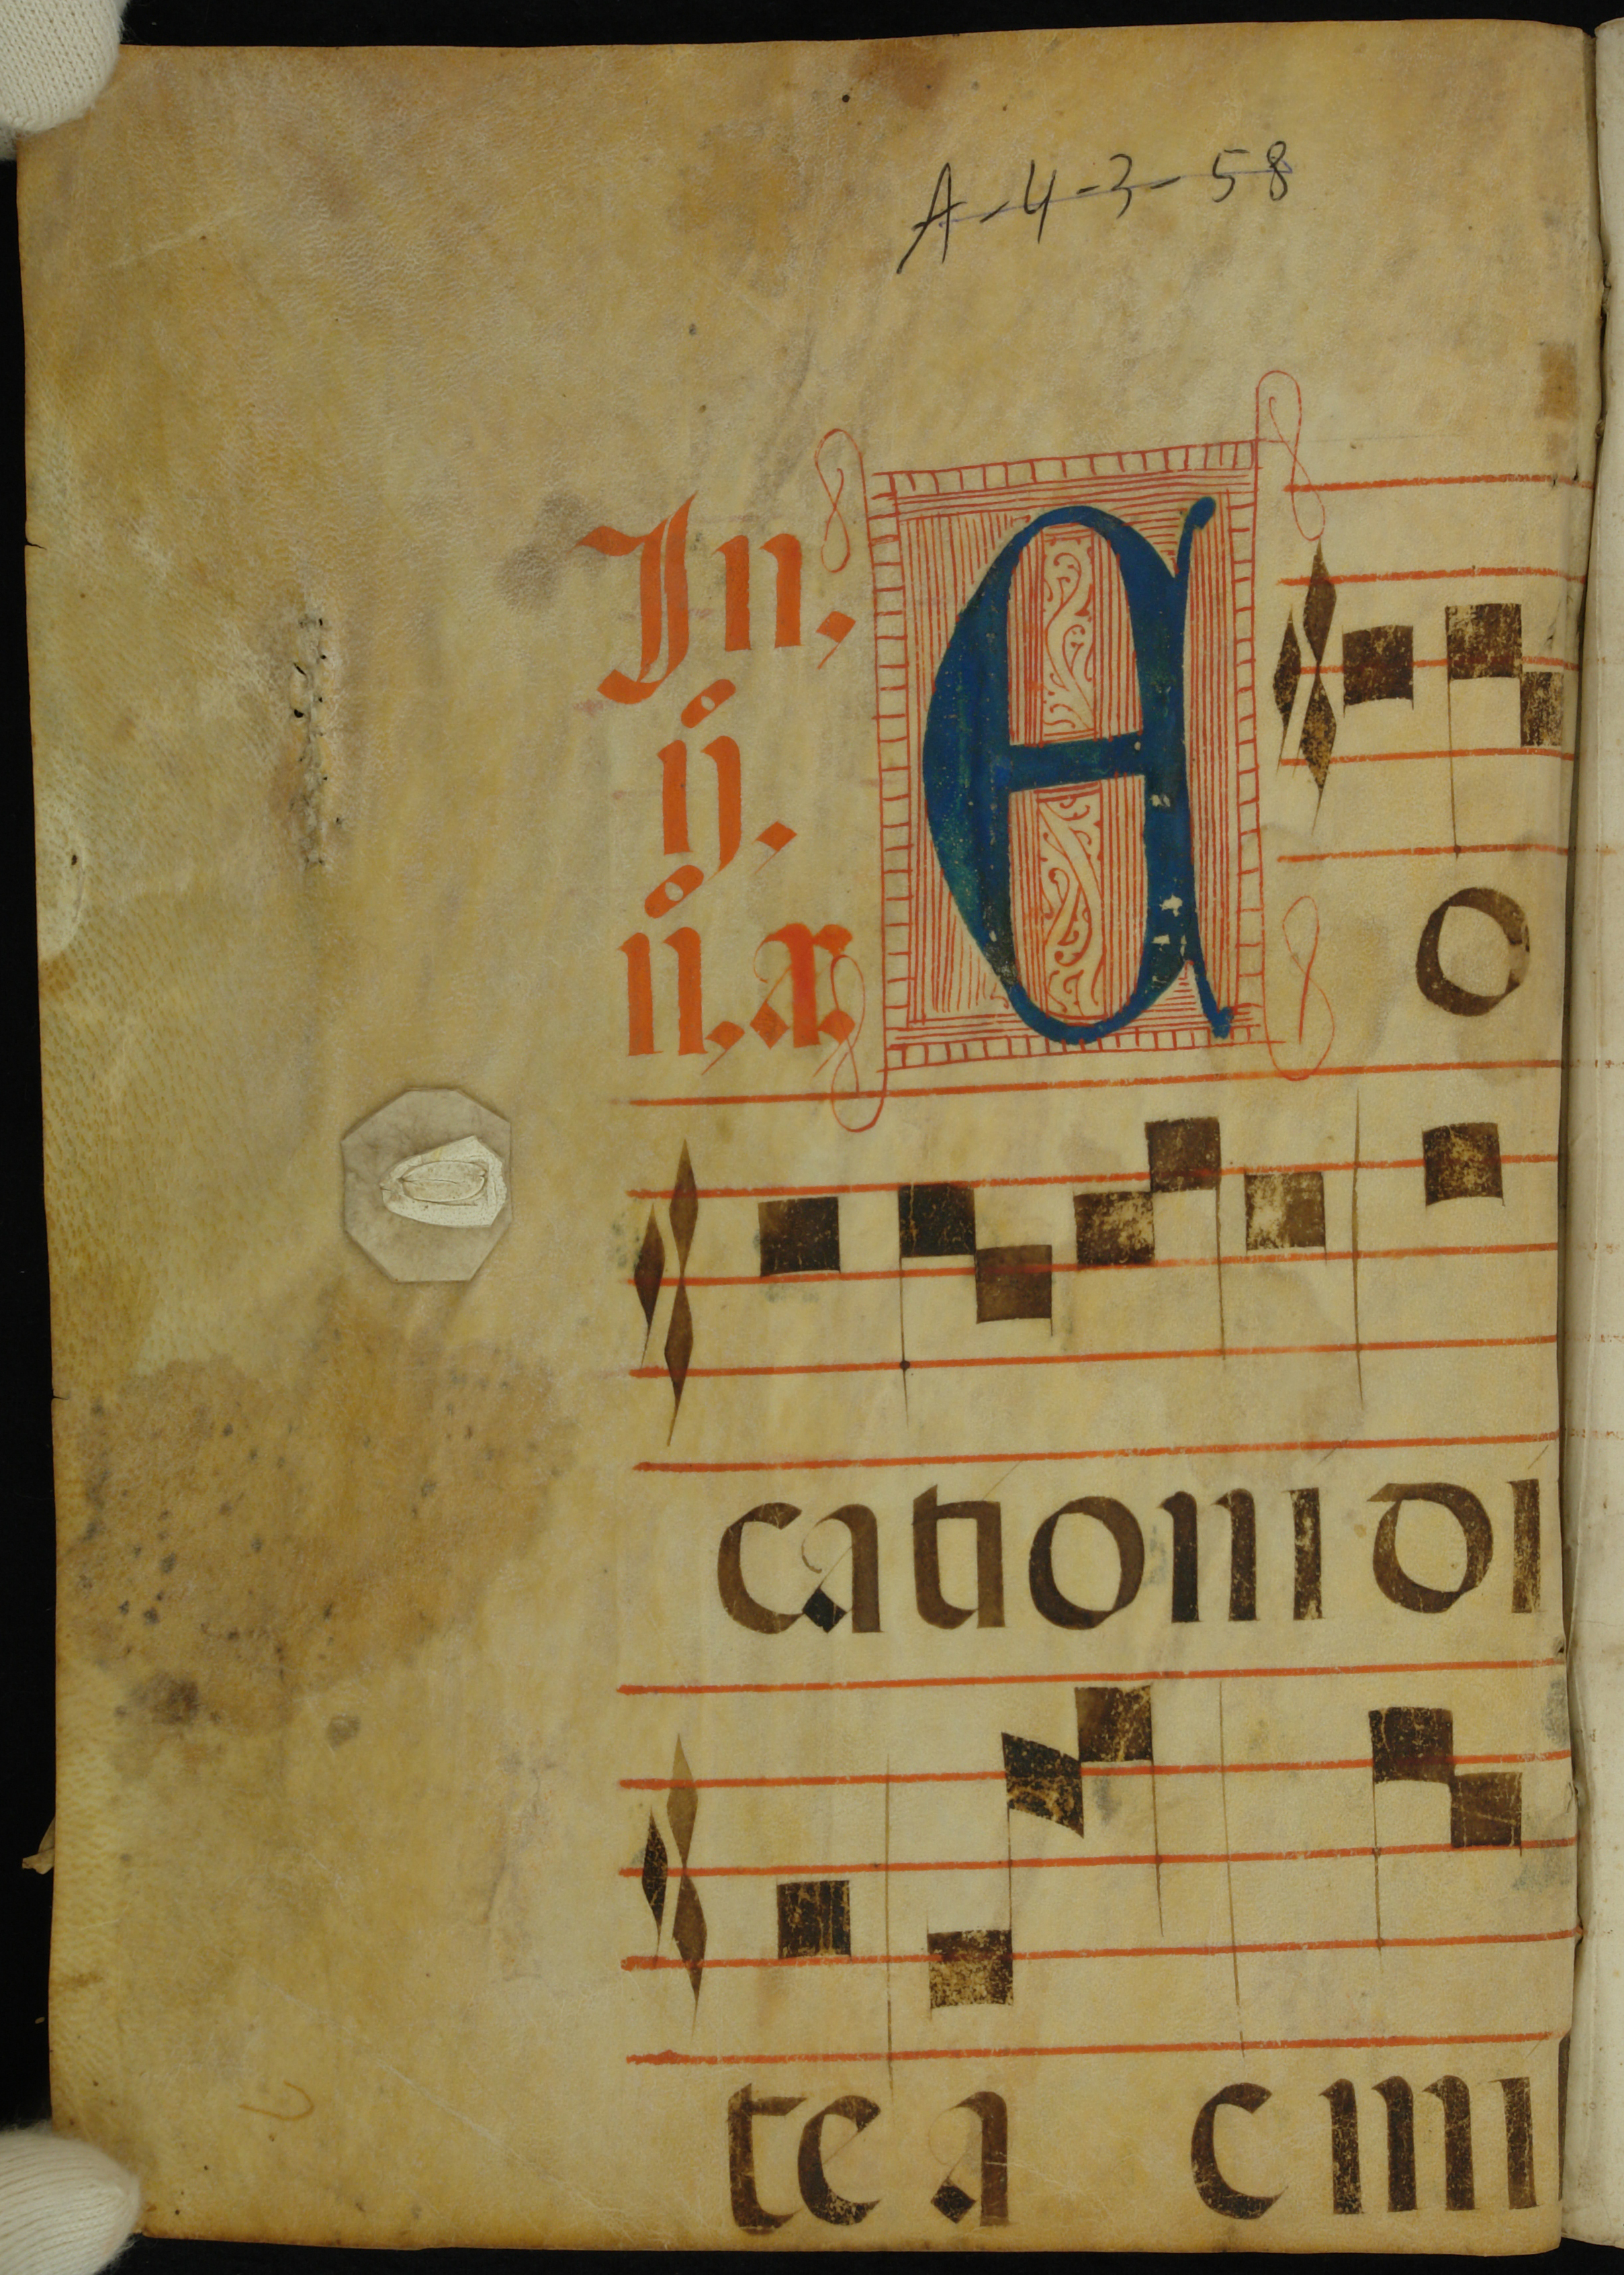 A-4-3-58
In. E
ij.
ii. a. o
cationi di
te a cini